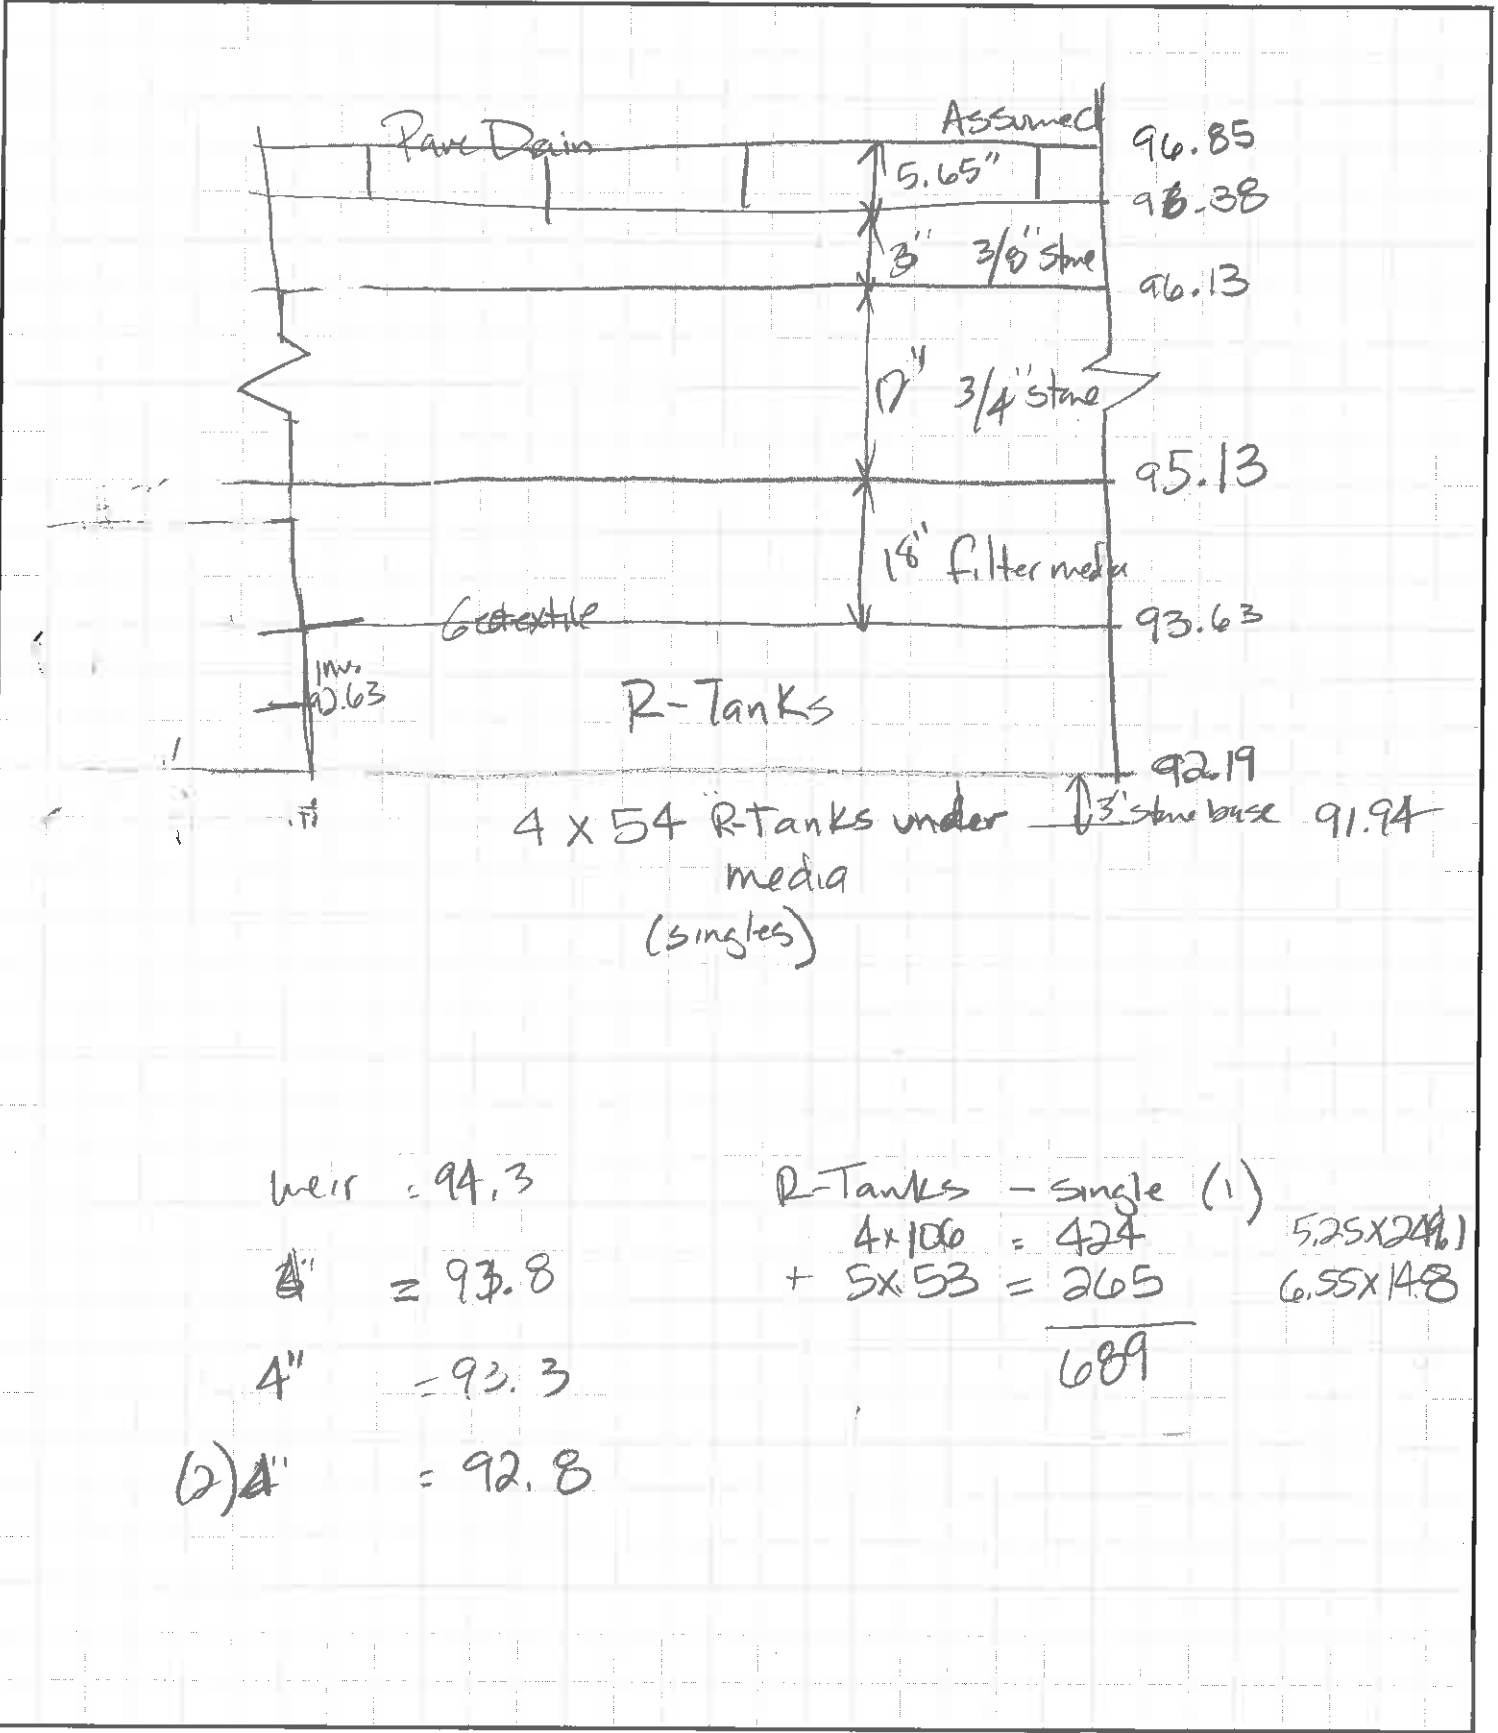 Assumed
Pave Drain
96.85
5.65"
96.38
3" 3/8" stone
96.13
12" 3/4" stone
95.13
18" filter media
Geotextile
93.63
Inv.
92.63
R-Tanks
92.19
3" stone base 91.94
4 x 54 R-Tanks under
media
(singles)
weir = 94.3
4" = 93.8
4" = 93.3
(2) 4" = 92.8
R-Tanks - single (1)
4x106 = 424
+ 5x53 = 265
689
6.55x148